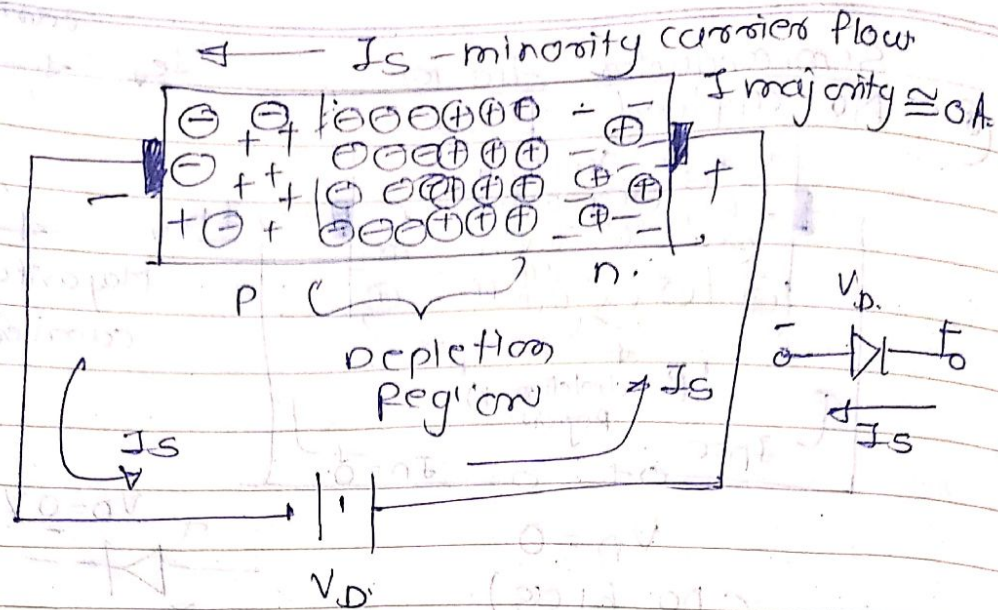 ← Is - minority carrier flow
I majority ≅ 0A.
⊖ ⊖ ⊖⊖⊖⊕⊕⊕ - -
+ + ⊕
⊖ ⊖⊖⊖⊕⊕⊕ -
- + + + ⊖ ⊖⊖⊕⊕⊕ ⊕ ⊕ +
+ ⊖ + ⊖⊖⊖⊕⊕⊕ - ⊕ - -
p n.
Depletion
Region
Is
Is
VD.
VD.
- +
Is